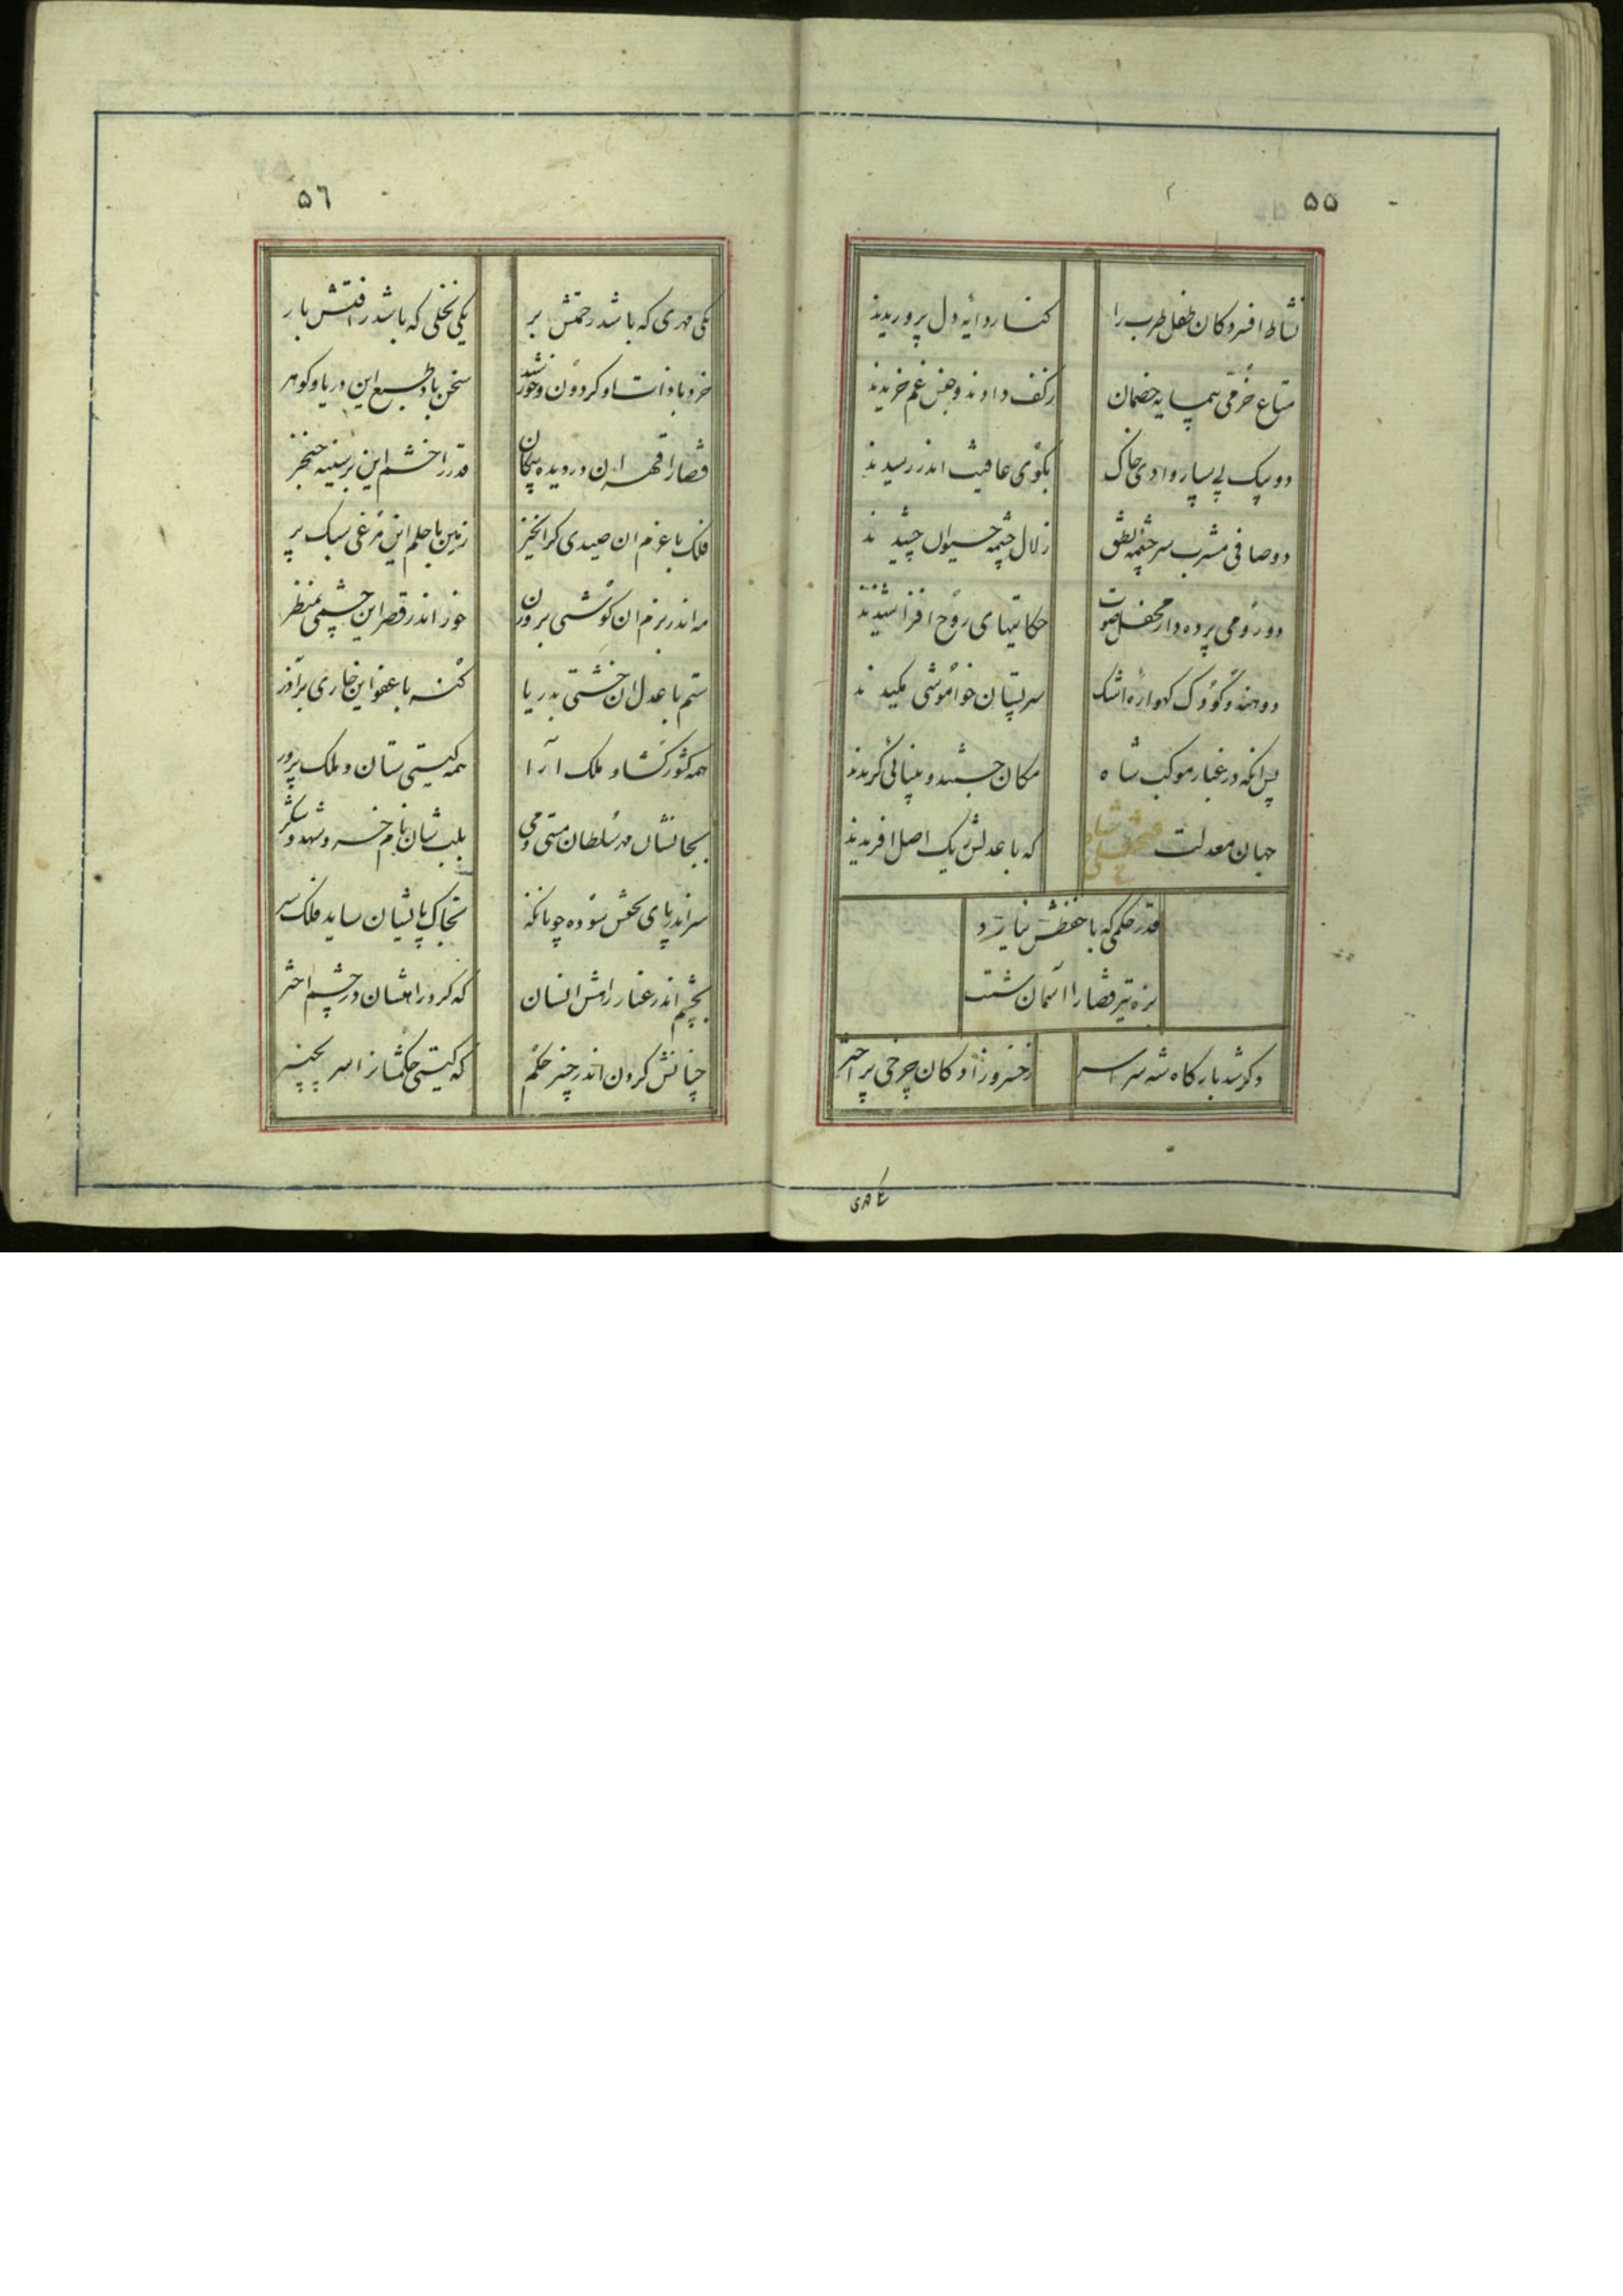 ۵۵
نشاط افسردکان طفل طرب را
کنار دایه دل پروریدند
متاع خرمی همسایه خصمان
زکف دادند و جنس غم خریدند
دو پیک پی سپار وادی خاک
بکوی عافیت اندر رسیدند
دو صافی مشرب سرچشمه نطق
زلال چشمه حیوان چشیدند
دو رومی پرده دار محفل صوت
حکایتهای روح افزا شنیدند
دو هندو کودک کهواره اشک
سر پستان خواموشی مکیدند
پس انکه در غبار موکب شاه
مکان جستند و بینائی گزیدند
جهان معدلت فتحعلی شاه
که با عدلش ز یک اصل افریدند
قدر حکمی که با حفظش نیارد
بزه تیر قضا را آسمان شست
دکر شد بارکاه شه سراسر
ز خسرو زادکان چرخی پر اختر
تکا مهری
۵٦
یکی مهری که باشد رحمتش بر
یکی نخلی که باشد رافتش بار
خرد با ذات او کردون و خورشید
سخن با طبع این دریا و کوهر
قضا را قهر ان در دیده پیکان
قدر را خشم این بر سینه خنجر
فلک با عزم ان صیدی کرانخیز
زمین با حلم این مرغی سبک پر
مه اندر بزم ان کوشی بروزن
خور اندر قصر این چشمی بمنظر
ستم با عدل ان خشتی بدریا
کنه با عفو این خاری بر آذر
همه کشور کشا و ملک آرا
همه کیتی ستان و ملک پرور
بجانشان مهر سلطان مستی و می
بلب شان نام خسرو شهد و شکر
سر اندر پای تختش سوده چونانکه
بخاک پایشان ساید فلک سر
بچشم اندر غبار راهش انسان
که کرد راهشان در چشم اختر
چنانش کردن اندر چنبر حکم
که کیتی حکمشانرا سر بچنبر